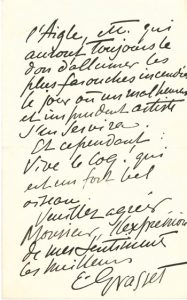 l'Aigle, etc. qui
auront toujours le
don d'allumer les
plus farouches incendies
le jour où un malheureux
et imprudent artiste
s'en servira
Et cependant :
Vive le Coq, qui
est un fort bel
oiseau.
Veuillez agréer
Monsieur, l'expression
de mes sentiments
les meilleurs
E Grasset